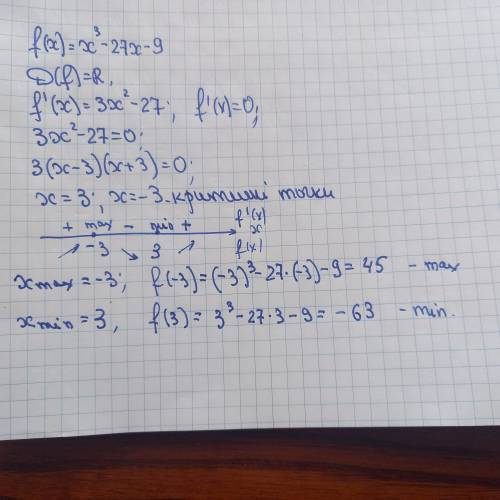 f(x)=x³-27x-9
D(f)=R,
f'(x)=3x²-27; f'(x)=0;
3x²-27=0;
3(x-3)(x+3)=0;
x=3; x=-3-критичні точки
+ max - min + f'(x)
x
-3 3 f(x)
xmax=-3; f(-3)=(-3)³-27·(-3)-9=45 - max
xmin=3; f(3)=3³-27·3-9=-63 - min.